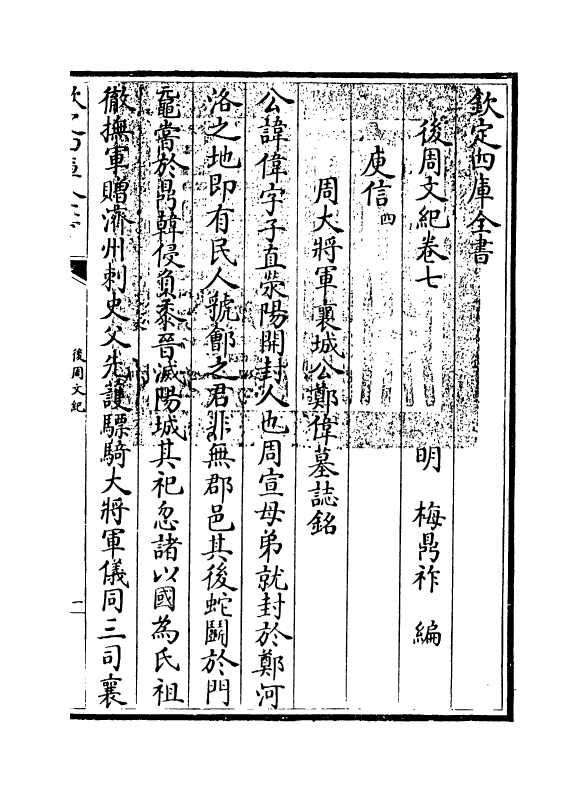 欽定四庫全書
後周文紀卷七
明 梅鼎祚 編
庾信四
周大將軍襄城公鄭偉墓誌銘
公諱偉字子直滎陽開封人也周宣母弟就封於鄭河
洛之地即有民人號鄶之君非無郡邑其後蛇鬬於門
黿嘗於鼎韓侵負黍晉滅陽城其祀忽諸以國為氏祖
徹撫軍贈濟州刺史父先護驃騎大將軍儀同三司襄
後周文紀
一